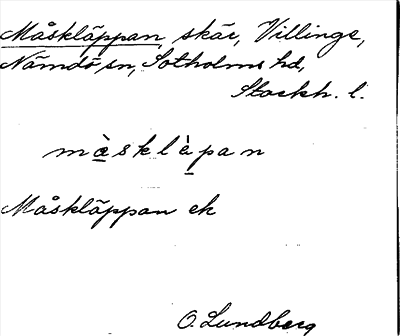 Måskläppan, skär, Villinge,
Nämdö, sn, Sotholms hd,
Stockh. l.
màsklàpan
Måskläppan ek
O. Lundberg